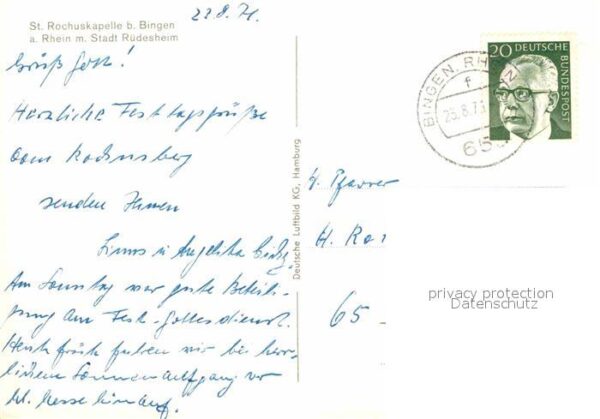 St. Rochuskapelle b. Bingen
a. Rhein m. Stadt Rüdesheim
22.8.71.
Grüß Gott!
Herzliche Festtagsgrüße
vom Rochusberg
senden Ihnen
Linus u. Angelika
Am Sonntag war gute Beteili-
gung am Fest-Gottesdienst.
Heute früh fuhren wir bei herr-
lichem Sonnenaufgang zur
hl. Messe hinauf.
Deutsche Luftbild KG, Hamburg
BINGEN, RHEIN
f
23.8.71
65
20 DEUTSCHE
BUNDESPOST
H. Pfarrer
H.
65
privacy protection
Datenschutz